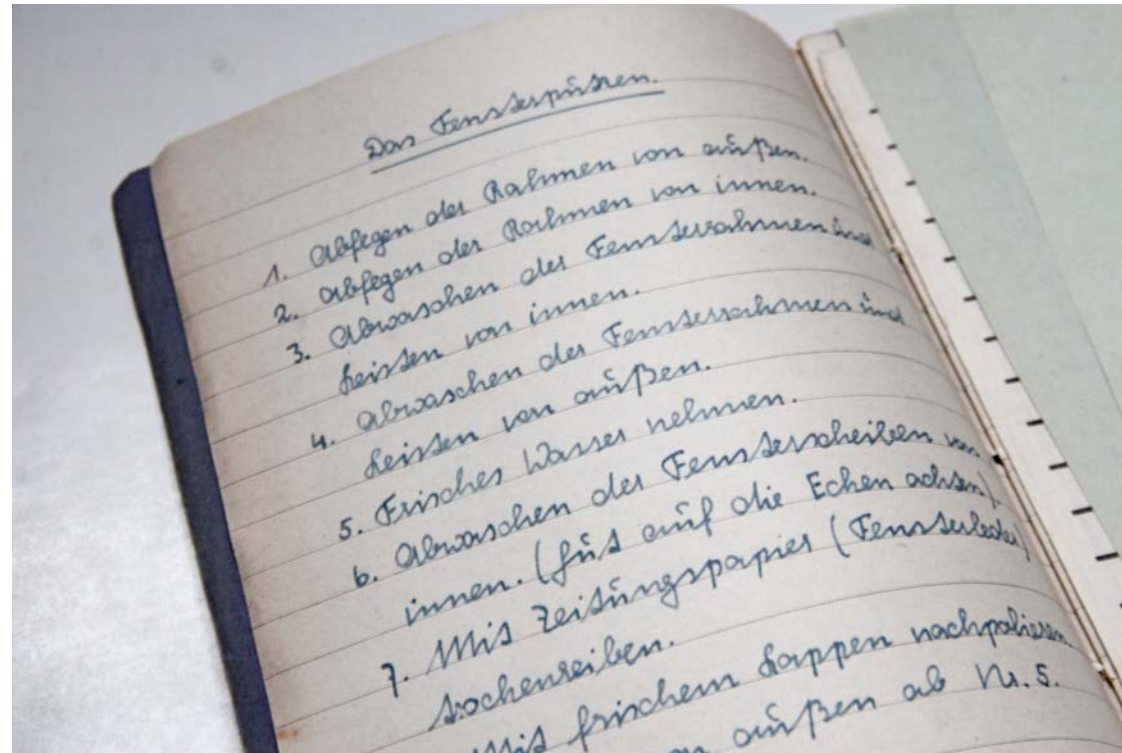 Das Fensterputzen.
1. Abfegen der Rahmen von außen.
2. Abfegen der Rahmen von innen.
3. Abwaschen der Fensterrahmen und
Leisten von innen.
4. Abwaschen der Fensterrahmen und
Leisten von außen.
5. Frisches Wasser nehmen.
6. Abwaschen der Fensterscheiben von
innen. (Gut auf die Ecken achten).
7. Mit Zeitungspapier (Fensterleder)
trockenreiben.
Mit frischem Lappen nachpolieren
von außen ab Nr. 5.